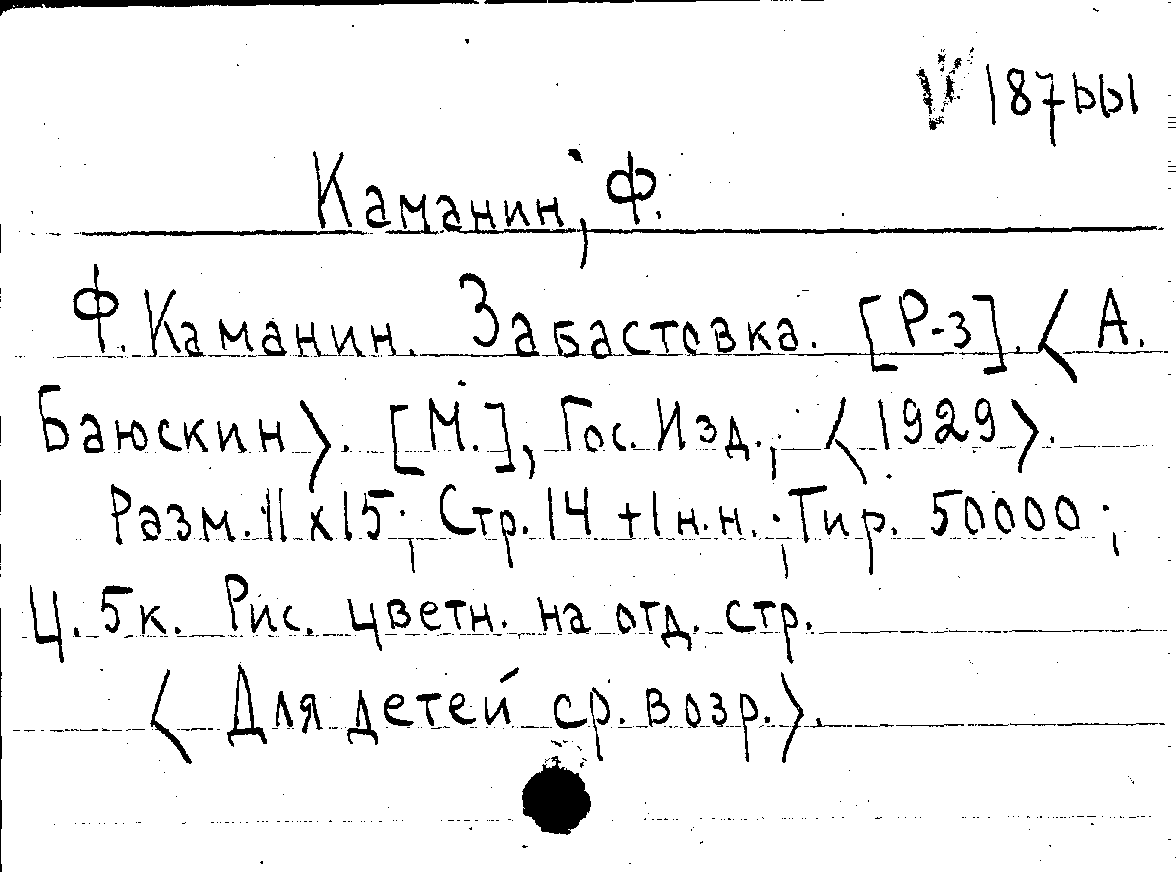 V 187ьы
Каманин, Ф.
Ф. Каманин. Забастовка. [Р-з]. < А.
Баюскин >. [М.], Гос. Изд., <1929>.
Разм. 11 x 15; Стр. 14 + 1 н.н.; Тир. 50000;
Ц. 5 к. Рис. цветн. на отд. стр.
< Для детей ср. возр. >.